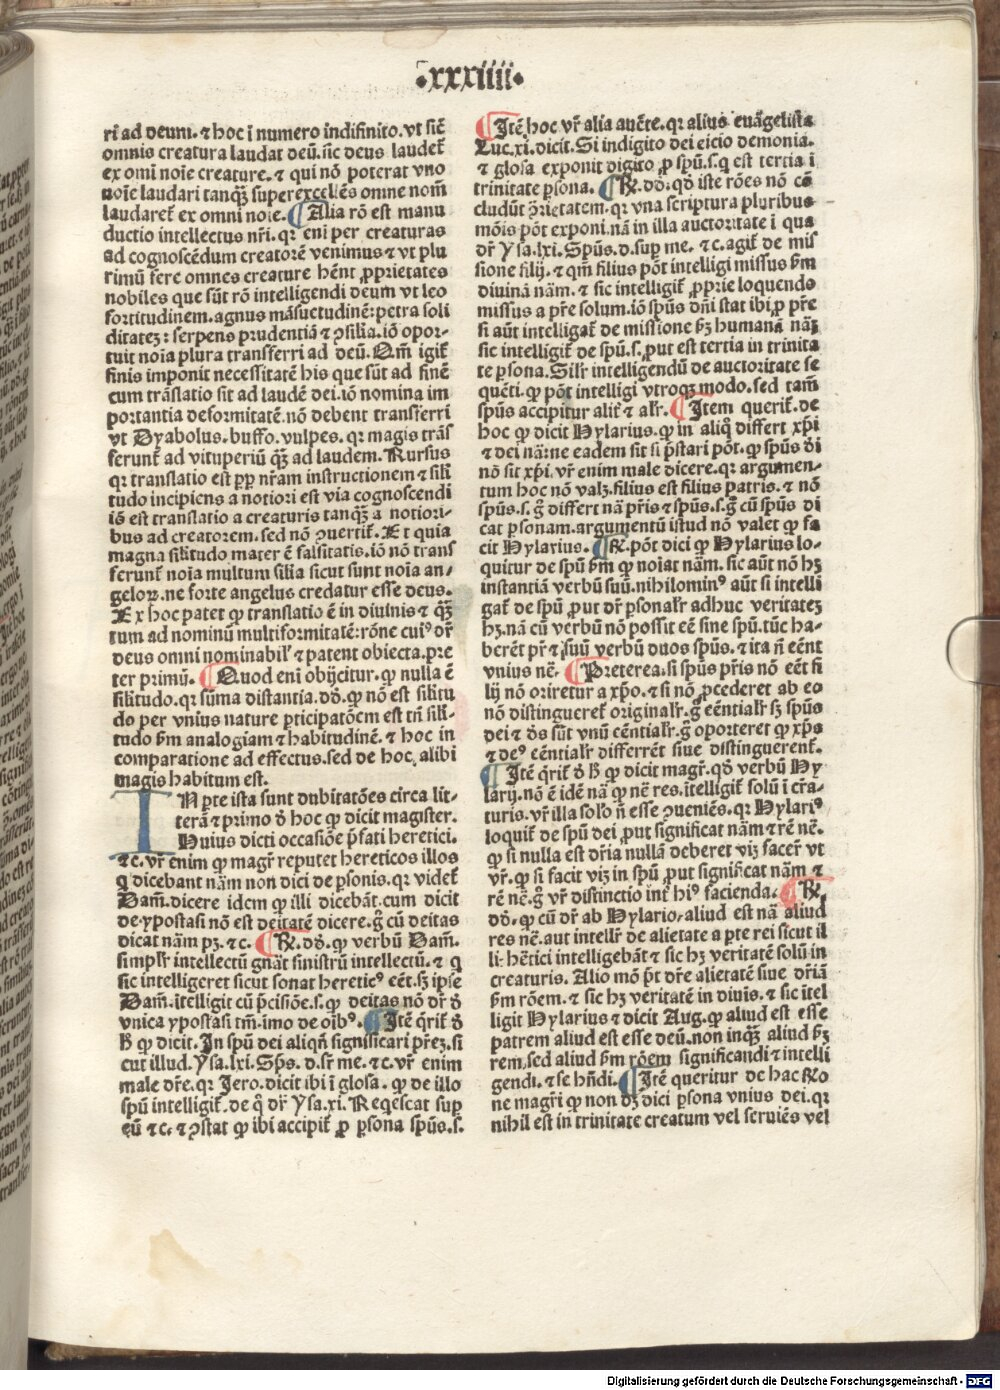 ·xxxiiii·
ri ad deum. ⁊ hoc ĩ numero indifinito. vt sic̃
omnis creatura laudat deũ. sic deus laudet̃
ex omi noĩe creature. ⁊ qui nõ poterat vno
noĩe laudari tanqꝫ superexcellẽs omne nom̃
laudaret̃ ex omni noĩe. ¶ Alia rõ est manu
ductio intellectus nr̃i. qꝛ eni per creaturas
ad cognoscẽdum creatorẽ venimus ⁊ vt plu
rimũ fere omnes creature hẽnt ꝓprietates
nobiles que sũt rõ intelligendi deum vt leo
fortitudinem. agnus mãsuetudinẽ: petra soli
ditatez: serpens prudentiã ⁊ ꝯsilia. iõ opor-
tuit noĩa plura transferri ad deũ. Qm̃ igit̃
finis imponit necessitatẽ his que sũt ad finẽ
cum trãslatio sit ad laudẽ dei. iõ nomina im
portantia deformitatẽ. nõ debent transferri
vt Dyabolus. buffo. vulpes. qꝛ magis trãs
ferunt̃ ad vituperiũ qꝫ̃ ad laudem. Rursus
qꝛ translatio est ꝓp nr̃am instructionem ⁊ sili
tudo incipiens a notiori est via cognoscendi
iõ est translatio a creaturis tanqꝫ̃ a notiori-
bus ad creatorem. sed nõ ꝯuertit̃. Et quia
magna silitudo mater ẽ falsitatis. iõ nõ trans
ferunt̃ noĩa multum silia sicut sunt noĩa an-
geloꝝ. ne forte angelus credatur esse deus.
Ex hoc patet ꝙ translatio ẽ in diuinis ⁊ qꝫ̃
tum ad nominũ multiformitatẽ: rõne cuiꝰ dr̃
deus omni nominabil' ⁊ patent obiecta. pre
ter primũ. ¶ Quod eni obijcitur. ꝙ nulla ẽ
silitudo. qꝛ sũma distantia. dõ. ꝙ nõ est silitu
do per vnius nature ꝑticipatõem est tñ sili-
tudo ẜm analogiam ⁊ habitudinẽ. ⁊ hoc in
comparatione ad effectus. sed de hoc alibi
magis habitum est.
IN ꝑte ista sunt dubitatões circa lit-
terã ⁊ primo ð hoc ꝙ dicit magister.
Huius dicti occasiõe p̃fati heretici.
⁊ c. vr̃ enim ꝙ magr̃ reputet hereticos illos
q̇ dicebant nãm non dici de ꝑsonis. qꝛ videt̃
Dam̃. dicere idem ꝙ illi dicebãt. cum dicit
de ypostasi nõ est deitatẽ dicere. g̃ cũ deitas
dicat nãm pꝫ. ⁊ c. ¶ R̃. dõ. ꝙ verbũ Dam̃.
simplr̃ intellectũ gñat sinistrũ intellectũ. ⁊ q̇
sic intelligeret sicut sonat hereticꝰ eẽt. sꝫ ipse
Dam̃. ĩtelligit cũ p̃cisiõe. s. ꝙ deitas nõ dr̃ ð
vnica ypostasi tm̃. imo de oĩbꝰ. ¶ Itẽ q̃rit̃ ð
h̃ ꝙ dicit. In spũ dei aliqñ significari pr̃ez. si
cut illud. Ysa. lxi. Sp̃s. d. sr̃ me. ⁊ c. vr̃ enim
male dr̃e. qꝛ Jero. dicit ibi ĩ glosa. ꝙ de illo
spũ intelligit̃. de q̊ dr̃ Ysa. xi. Reqescat sup
eũ ⁊ c. ⁊ ꝯstat ꝙ ibi accipit̃ ꝓ ꝑsona spũs. s.
¶ Itẽ hoc vr̃ alia aucte. qꝛ alius euãgelista
Luc. xi. dicit. Si indigito dei eicio demonia.
⁊ glosa exponit digito ꝓ spũ. s. q̇ est tertia ĩ
trinitate ꝑsona. ¶ R̃. dõ. qđ iste rões nõ cõ
cludũt ꝯ̃rietatem. qꝛ vna scriptura pluribus
mõis põt exponi. nã in illa auctoritate ĩ qua
dr̃ Ysa. lxi. Spũs. d. suꝑ me. ⁊ c. agit̃ de mis
sione filij. ⁊ qm̃ filius põt intelligi missus ẜm
diuinã nãm. ⁊ sic intelligit̃ ꝓprie loquendo
missus a pr̃e solum. iõ spũs dñi stat ibi ꝓ pr̃e
si aũt intelligat̃ de missione ẜꝫ humanã nãz
sic intelligit̃ de spũ. s. ꝓut est tertia in trinita
te ꝑsona. Silr̃ intelligendũ de auctoritate se
quẽti. ꝙ põt intelligi vtroqꝫ modo. sed tam̃
spũs accipitur alit̃ ⁊ alr̃. ¶ Item querit̃. de
hoc ꝙ dicit Hylarius. ꝙ in aliq̊ differt xp̃i
⁊ dei nãr: ne eadem sit si p̃stari põt. ꝙ spũs ði
nõ sit xp̃i. vr̃ enim male dicere. qꝛ argumen-
tum hoc nõ valꝫ. filius est filius patris. ⁊ nõ
spũs. s. g̊ differt nãr pr̃is ⁊ spũs. s. g̊ cũ spũs di
cat ꝑsonam. argumentũ istud nõ valet ꝙ fa
cit Hylarius. ¶ R̃. põt dici ꝙ Hylarius lo-
quitur de spũ ẜm ꝙ noĩat nãm. sic aũt nõ hꝫ
instantiã verbũ suũ. nihilominꝰ aũt si intelli
gat̃ de spũ ꝓut dr̃ ꝑsonalr̃ adhuc veritatez
hꝫ. nã cũ verbũ nõ possit eẽ sine spũ. tũc ha-
berẽt pr̃ ⁊ suũ verbũ duos spũs. ⁊ ita ñ eẽnt
vnius nẽ. ¶ Preterea. si spũs pr̃is nõ eẽt fi
lij nõ oriretur a xp̃o. ⁊ si nõ ꝓcederet ab eo
nõ distingueret̃ originalr̃. g̊ eẽntialr̃ sꝫ spũs
dei ⁊ ðs sũt vnũ cẽntialr̃. g̊ oporteret ꝙ xp̃s
⁊ deꝰ eẽntialr̃ differrẽt siue distinguerent̃.
¶ Itẽ q̃rit̃ ð h̃ ꝙ dicit magr̃. qđ verbũ Hy
larij. nõ ẽ idẽ nã ꝙ nẽ res. ĩtelligit̃ solũ ĩ cr̃a-
turis. vr̃ illa solo ñ esse ꝯueniẽs. qꝛ Hylariꝰ
loquit̃ de spũ dei ꝓut significat nãm ⁊ rẽ nẽ.
ꝙ si nulla est dr̃ia nullã deberet vim facer̃ vt
vr̃. ꝙ si facit vim in spũ ꝓut significat nãm ⁊
rẽ nẽ. g̊ vr̃ distinctio int̃ hiꝰ facienda. ¶ R̃.
dõ. ꝙ cũ dr̃ ab Hylario. aliud est nã aliud
res nẽ. aut intellr̃ de alietate a ꝑte rei sicut il
li. hẽtici intelligebãt ⁊ sic hꝫ veritatẽ solũ in
creaturis. Alio mõ p̃t dr̃e alietatẽ siue dr̃iã
ẜm rõem. ⁊ sic hꝫ veritatẽ in diuis. ⁊ sic ĩtel
ligit Hylarius ⁊ dicit Aug. ꝙ aliud est esse
patrem aliud est esse deũ. non inqꝫ̃ aliud ẜꝫ
rem. sed aliud ẜm rõem significandi ⁊ intelli
gendi. ⁊ se hñdi. ¶ Itẽ queritur de hac Rõ
ne magr̃i ꝙ non dꝫ dici ꝑsona vnius dei. qꝛ
nihil est in trinitate creatum vel seruiẽs vel
Digitalisierung gefördert durch die Deutsche Forschungsgemeinschaft - DFG